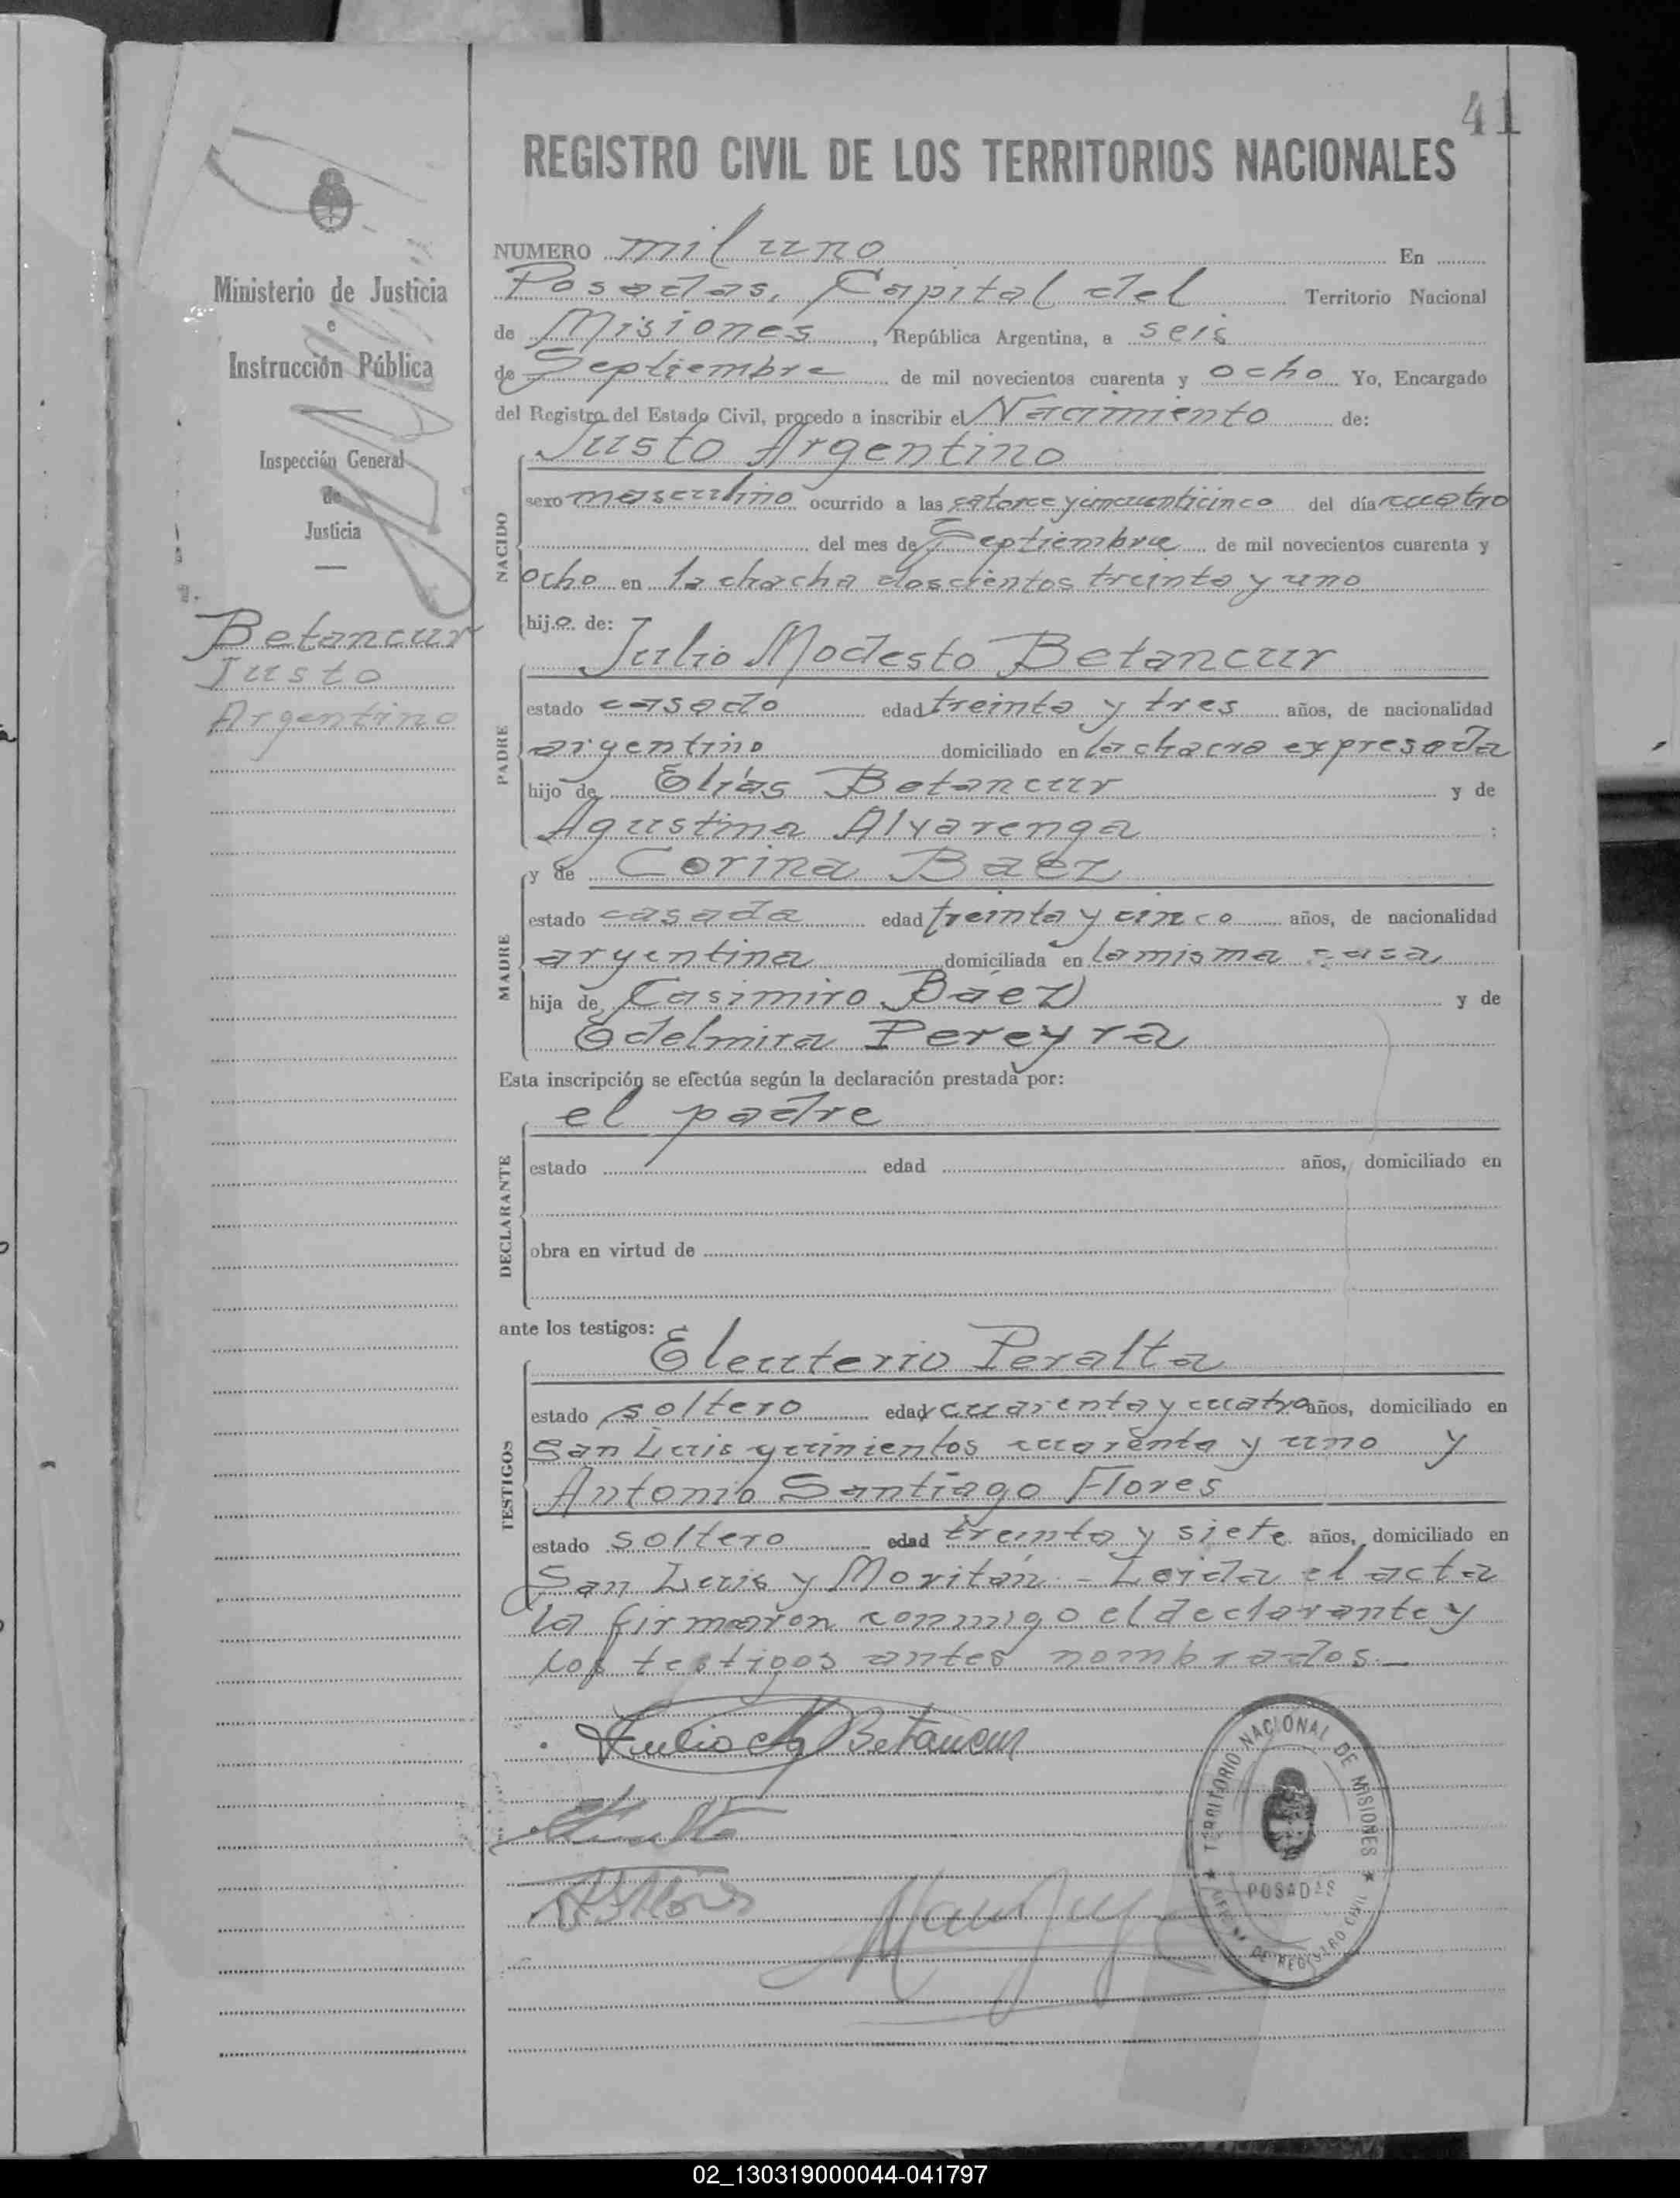 41
REGISTRO CIVIL DE LOS TERRITORIOS NACIONALES
Ministerio de Justicia
e
Instrucción Pública
Inspección General
de
Justicia
Betancur
Justo
Argentino
NUMERO mil uno En
Posadas, Capital del Territorio Nacional
de Misiones, República Argentina, a seis
de Septiembre de mil novecientos cuarenta y ocho Yo, Encargado
del Registro del Estado Civil, procedo a inscribir el Nacimiento de:
Justo Argentino
NACIDO
sexo masculino ocurrido a las catorce y cincuenticinco del día cuatro
del mes de Septiembre de mil novecientos cuarenta y
ocho en la chacha doscientos treinta y uno
hijo de:
Julio Modesto Betancur
PADRE
estado casado edad treinta y tres años, de nacionalidad
argentino domiciliado en la chacra expresada
hijo de Elías Betancur y de
Agustina Alvarenga :
y de Corina Baez
MADRE
estado casada edad treinta y cinco años, de nacionalidad
argentina domiciliada en la misma casa,
hija de Casimiro Báez y de
Edelmira Pereyra
Esta inscripción se efectúa según la declaración prestada por:
el padre
DECLARANTE
estado edad años, domiciliado en
obra en virtud de
ante los testigos:
Eleuterio Peralta
TESTIGOS
estado soltero edad cuarenta y cuatro años, domiciliado en
San Luis quinientos cuarenta y uno y
Antonio Santiago Flores
estado soltero edad treinta y siete años, domiciliado en
San Luis y Moritán - Leida el acta
la firmaron conmigo el declarante y
los testigos antes nombrados.—
Julio M Betancur
TERRITORIO NACIONAL DE MISIONES
POSADAS
DE REGISTRO CIVIL
02_130319000044-041797